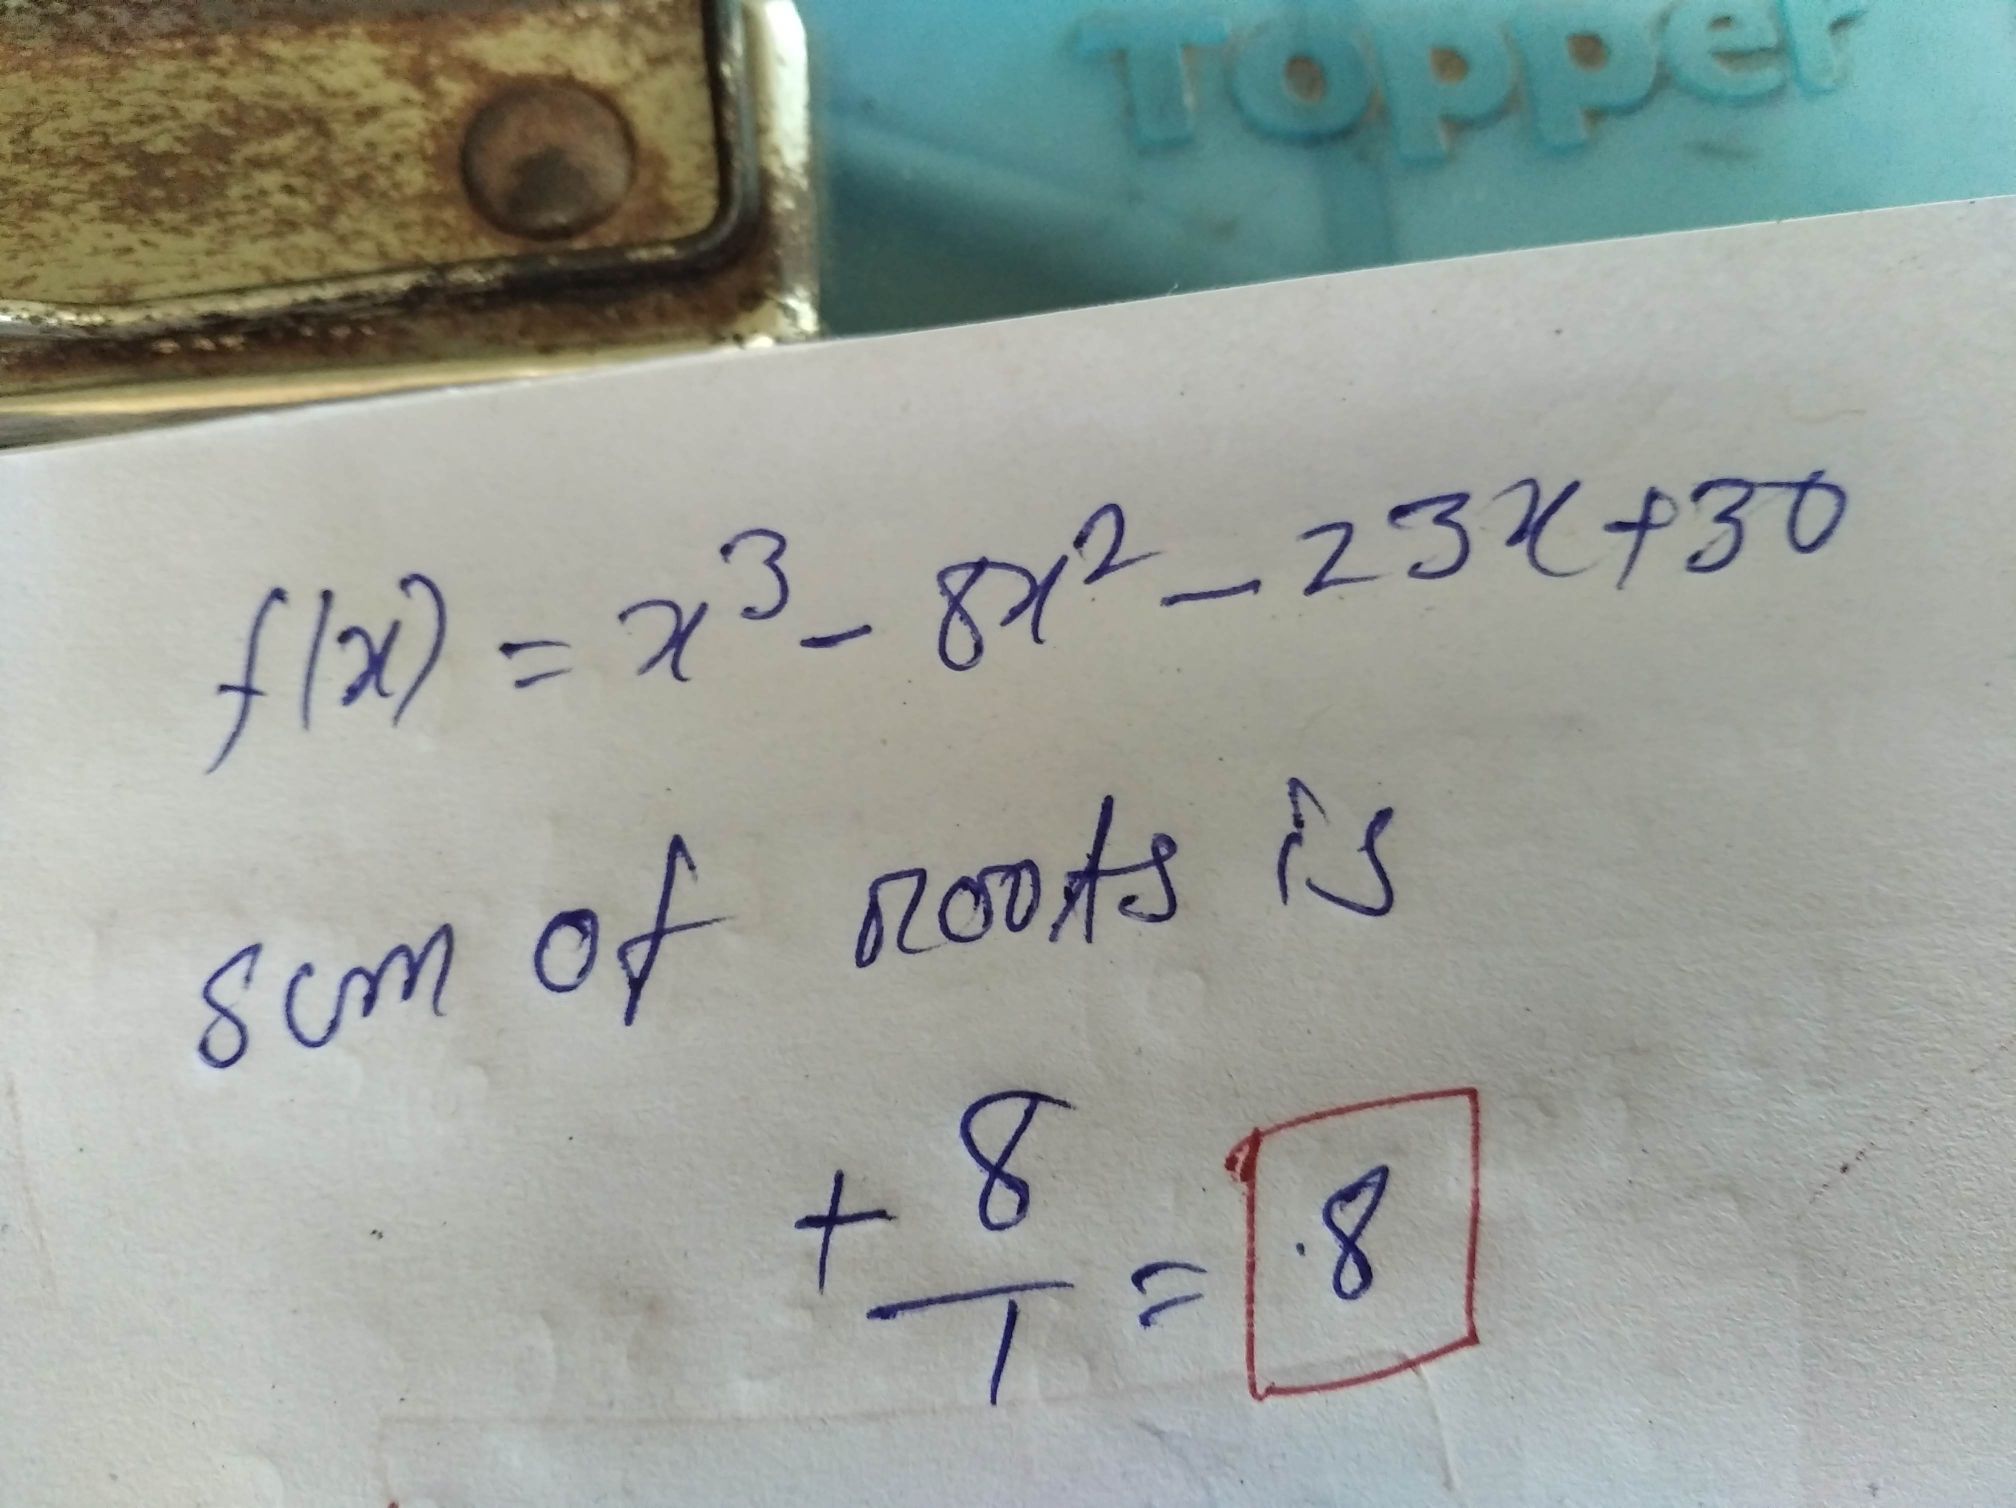 Topper
f(x) = x³ - 8x² - 23x + 30
sum of roots is
+ 8/1 = .8